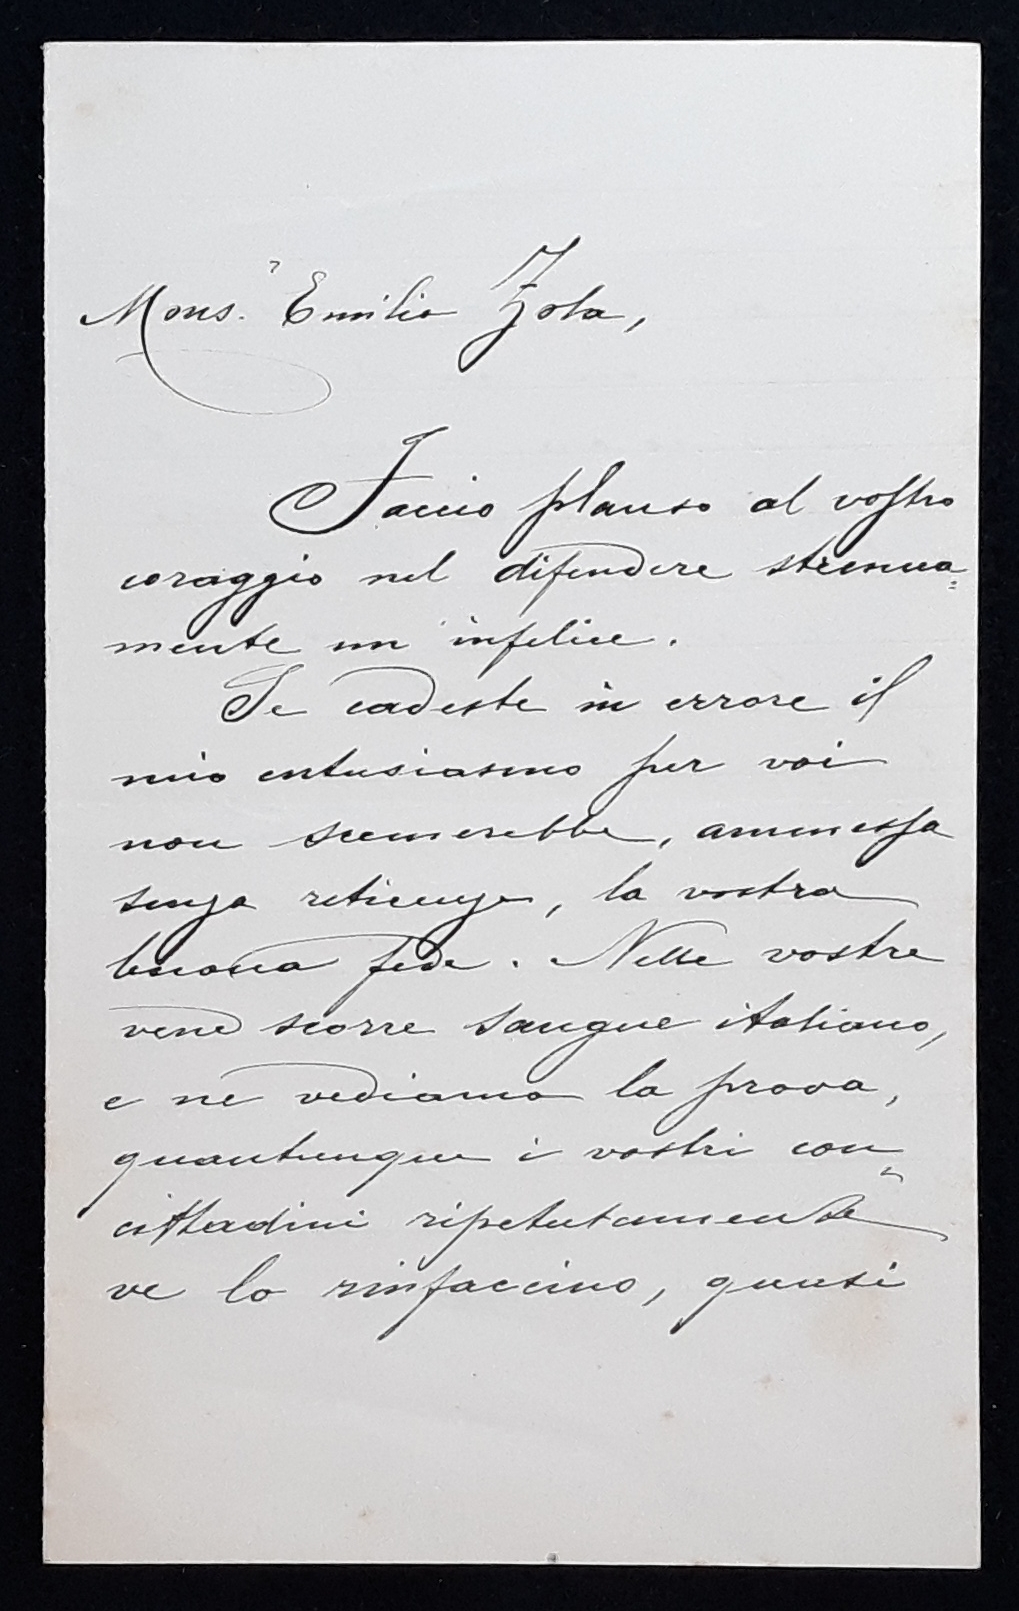 Mons.r Emilio Zola,
Faccio plauso al vostro
coraggio nel difendere strenua=
mente un infelice.
Se cadeste in errore il
mio entusiasmo per voi
non scemerebbe, ammessa
senza reticenze, la vostra
buona fede. Nelle vostre
vene scorre sangue italiano,
e ne vediamo la prova,
quantunque i vostri con=
cittadini ripetutamente
ve lo rinfaccino, quasi